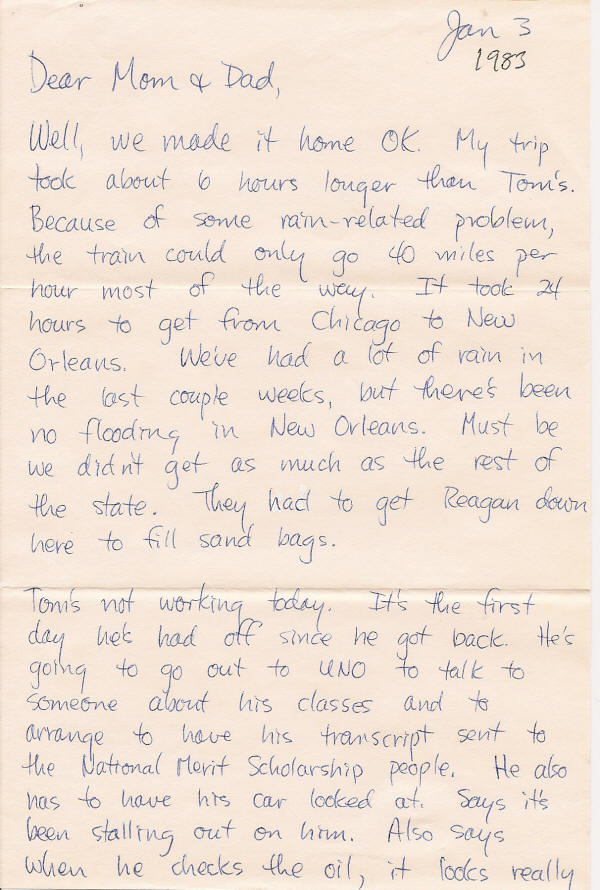 Jan 3
1983
Dear Mom & Dad,
Well, we made it home OK. My trip
took about 6 hours longer than Tom's.
Because of some rain-related problem,
the train could only go 40 miles per
hour most of the way. It took 24
hours to get from Chicago to New
Orleans. We've had a lot of rain in
the last couple weeks, but there's been
no flooding in New Orleans. Must be
we didn't get as much as the rest of
the state. They had to get Reagan down
here to fill sand bags.
Tom's not working today. It's the first
day he's had off since he got back. He's
going to go out to UNO to talk to
someone about his classes and to
arrange to have his transcript sent to
the National Merit Scholarship people. He also
has to have his car looked at. Says it's
been stalling out on him. Also says
when he checks the oil, it looks really